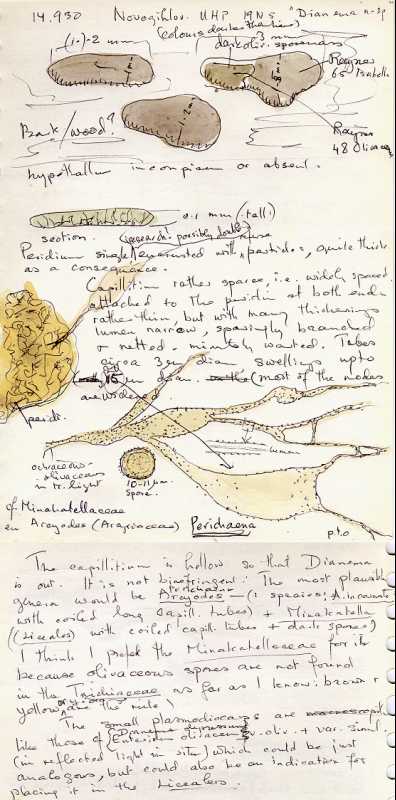 14.930 Novozhilov. UHP 19NS "Dianema n. sp
(colours darker than here)
(1-)-2 mm
3 mm
dark oliv. sporemass
Rayner
65 Isabella
Bark/wood?
Rayner
48 Olivaceous
hypothallus inconspicuous or absent.
0.1 mm (tall!)
section. (research! possibly double
Peridium single, encrusted with particles, quite thick
as a consequence.
Capillitium rather sparse, i.e. widely spaced
attached to the peridium at both ends
rather thin, but with many thickenings
lumen narrow, sparingly branched
& netted, minutely warted. Tubes
circa 3 µm diam swellings up to
15 µm diam. (most of the nodes
are widened
peridi.
lumen
ochraceous-
olivaceous
in tr. light
10-11 µm
spore.
cf Minakatellaceae
en Arcyodes (Arcyriaceae) Perichaena
p.t.o
The capillitium is hollow so that Dianema
is out. It is not birefringent. The most plausible
genera would be Arcyodes (1 species; A. incarnata
with coiled long capill. tubes) + Minakatella
(Liceales) with coiled capill. tubes + dark spores)
I think I prefer the Minakatellaceae for it
because olivaceous spores are not found
in the Trichiaceae as far as I know: brown &
yellow are the rule)
The small plasmodiocarps are
like those of
(in reflected light in situ) which could be just
analogous, but could also be an indication for
placing it in the Liceales.